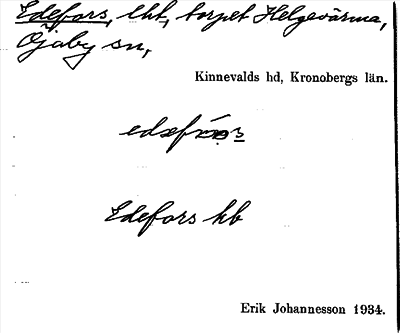 Edefors, lht, torpet Helgevärma,
Öjaby sn,
Kinnevalds hd, Kronobergs län.
Edefors hb
Erik Johannesson 1934.